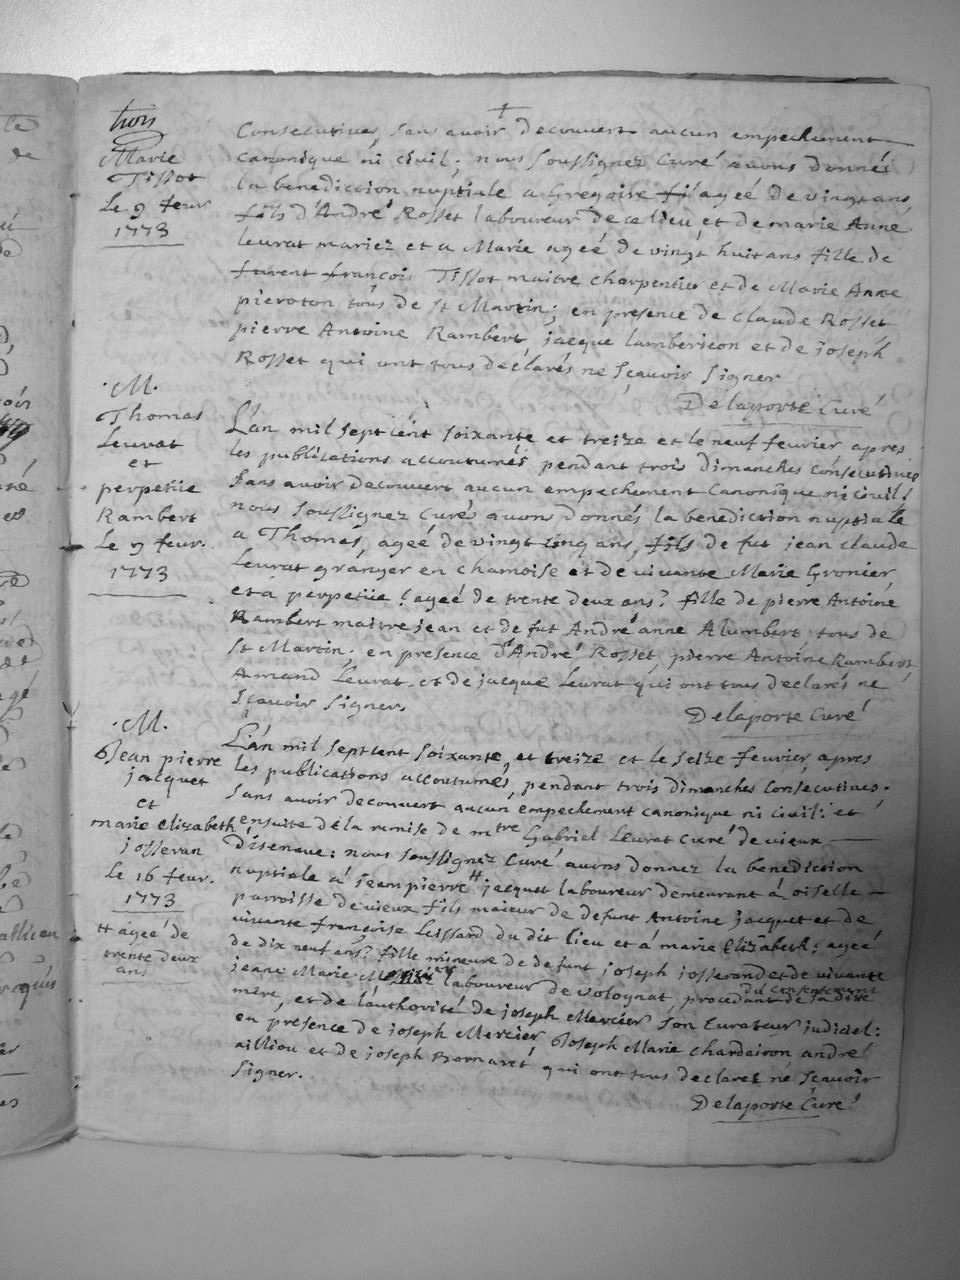 trois
Marie
Tissot
le 9 feur
1773
+
Consecutives, sans avoir decouvert aucun empechement
canonique ni civil; nous soussignez Curé avons donnés
la benediction nuptiale a Gregoire ageé de vingt ans,
fils d'André Rosset laboureur de ce lieu et de marie Anne
leurat mariez et a Marie ageé de vingt huit ans fille de
françois Tissot maitre charpentier et de Marie Anne
pieroton tous de st Martin; en presence de Claude Rosset
pierre Antoine Rambert, jacque lambericon et de joseph
Rosset qui ont tous déclarés ne sçauoir signer
Delaporte Curé
.M.
Thomas
Leurat
et
perpetüe
Rambert
le 9 feur.
1773
L'an mil sept cent soixante et treize et le neuf fevrier apres
les publications accoutumés pendant trois dimanches consecutives
sans avoir decouvert aucun empechement canonique ni civil:
nous soussignez Curés avons donnés la benediction nuptiale
a Thomas, ageé de vingt cinq ans, fils de fut jean claude
Leurat granger en chamoise et de vivante Marie Gronier
et a perpetüe ageé de trente deux ans, fille de pierre Antoine
Rambert maitre jean et de fut André anne Alumbert tous de
st Martin; en presence d'André Rosset, pierre Antoine Rambert
Armand Leurat et de jacque Leurat qui ont tous declarés ne
sçavoir signers
Delaporte Curé
.M.
Jean pierre
jacquet
et
marie elizabeth
josseran
le 16 feur.
1773
++ ageé de
trente deux
ans
L'an mil sept cent soixante, et treize et le seize fevrier, apres
les publications accoutumés, pendant trois dimanches consecutives.
sans avoir decouvert aucun empechement canonique ni civil: et
ensuite de la remise de mtre Gabriel Leurat curé de vieux
Disenave: nous soussignez Curé avons donnez la benediction
nuptiale á jean pierre ++ jacquet laboureur demeurant á oiselle
parroisse de vieux fils maieur de defunt Antoine jacquet et de
vivante françoise Leissard du dit lieu et á marie Elizabeth; ageé
de dix neuf ans, fille mineure de defunt joseph josserand et de vivante
jeane Marie laboureur de Volognat, procedant du consentement de sa dite
mere, et de l'authorité de joseph Mercier son Curateur judiciel:
en presence de joseph Mercier, Joseph Marie chardeiron andré
ailliou et de joseph Bornaret qui ont tous declarez ne sçavoir
signer.
Delaporte Curé